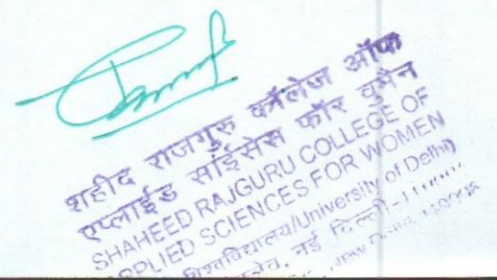 शहीद राजगुरु कॉलेज ऑफ
एप्लाईड साईंसेस फॉर वुमैन
SHAHEED RAJGURU COLLEGE OF
APPLIED SCIENCES FOR WOMEN
विश्वविद्यालय/University of Delhi)
नई दिल्ली